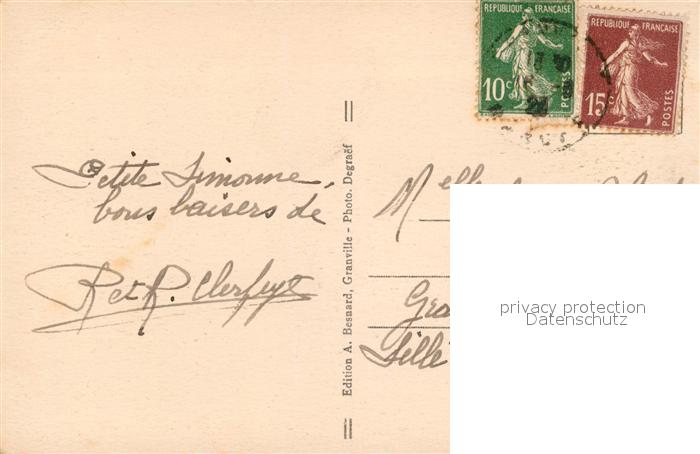 RÉPUBLIQUE FRANÇAISE
10c
POSTES
RÉPUBLIQUE FRANÇAISE
15c
POSTES
Petite Simonne,
bons baisers de
R et R. Clerfeyt
Edition A. Besnard, Granville - Photo. Degraëf
Melle
Gra
Sillé
privacy protection
Datenschutz